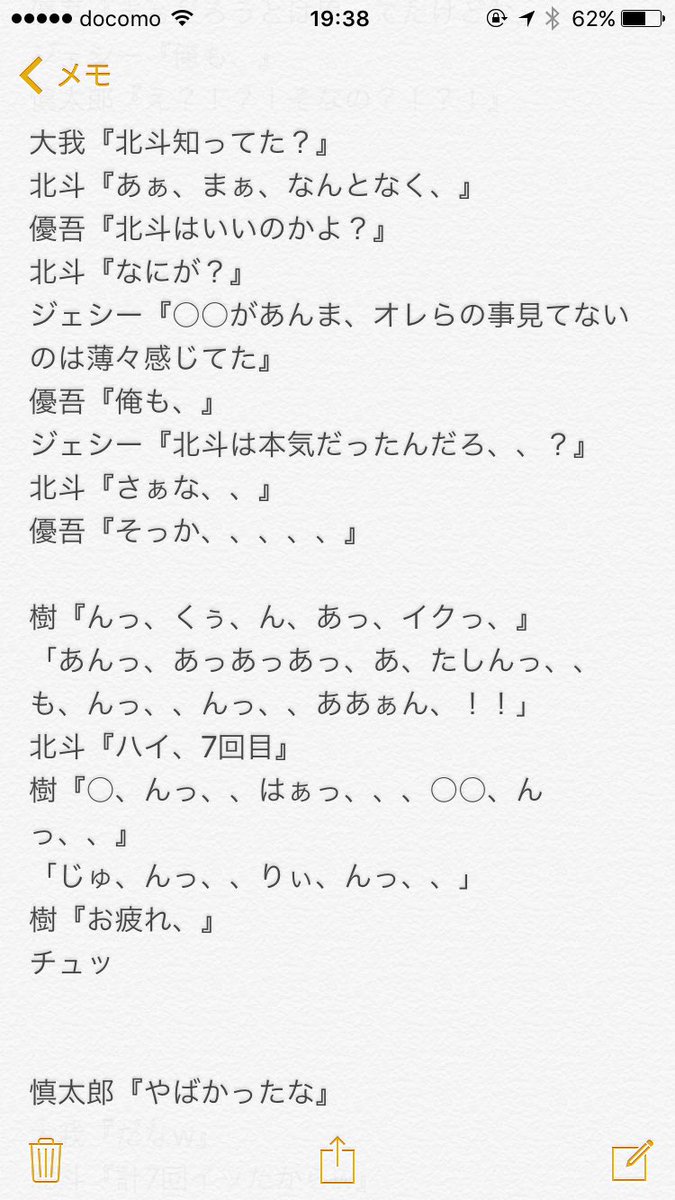 docomo 19:38 62%
メモ
大我『北斗知ってた？』
北斗『あぁ、まぁ、なんとなく、』
優吾『北斗はいいのかよ？』
北斗『なにが？』
ジェシー『○○があんま、オレらの事見てない
のは薄々感じてた』
優吾『俺も、』
ジェシー『北斗は本気だったんだろ、、？』
北斗『さぁな、、』
優吾『そっか、、、、、』
樹『んっ、くぅ、ん、あっ、イクっ、』
「あんっ、あっあっあっ、あ、たしんっ、、
も、んっ、、んっ、、ああぁん、！！」
北斗『ハイ、7回目』
樹『○、んっ、、はぁっ、、、○○、ん
っ、、』
「じゅ、んっ、、りぃ、んっ、、」
樹『お疲れ、』
チュッ
慎太郎『やばかったな』